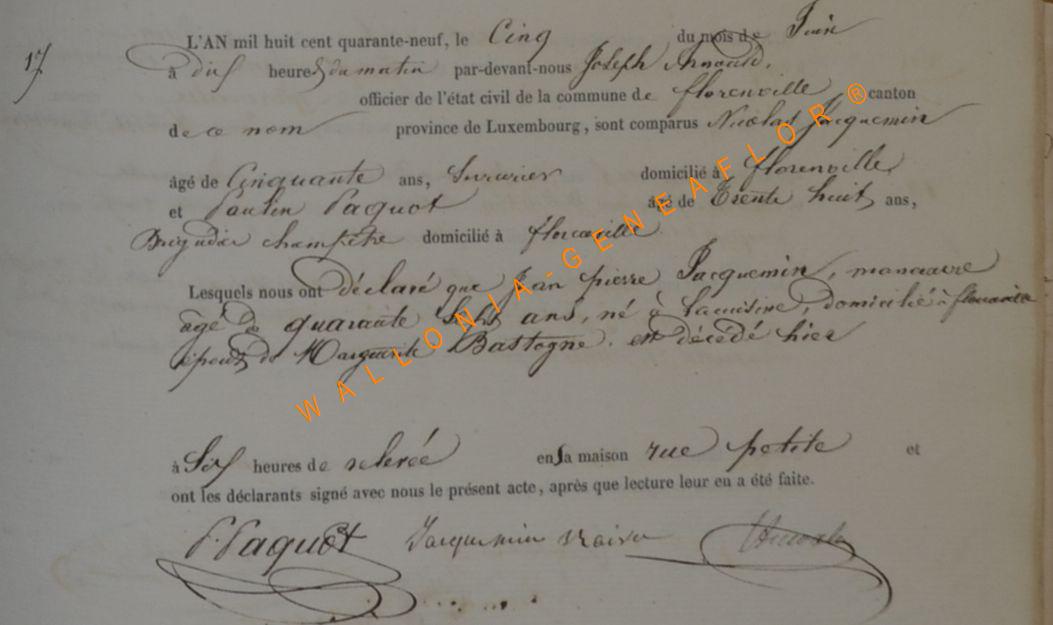 17
L'AN mil huit cent quarante-neuf, le Cinq du mois de Juin
à dix heures du matin par-devant-nous Joseph Arnould,
officier de l'état civil de la commune de florenville canton
de ce nom province de Luxembourg, sont comparus Nicolas Jacquemin
âgé de Cinquante ans, Serrurier domicilié à florenville
et Paulin Paquot âgé de Trente huit ans,
Brigadier champêtre domicilié à florenville
Lesquels nous ont déclaré que Jean pierre Jacquemin, manœuvre
âgé de quarante Sept ans, né à domicilié à florenville
époux de Marguerite Bastogne. est décédé hier
à Six heures de relevée en sa maison rue petite et
ont les déclarants signé avec nous le présent acte, après que lecture leur en a été faite.
P. Paquot Jacquemin
WALLONIA-GENEAFLOR®